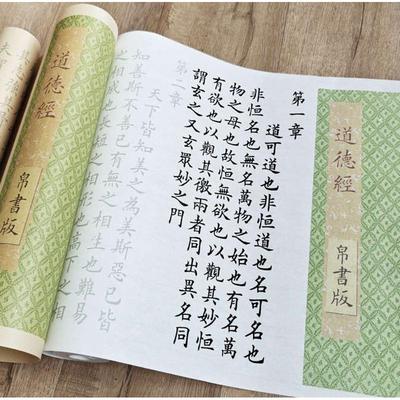 道德經
帛書版
第一章
道可道也非恒道也名可名也
非恒名也無名萬物之始也有名萬
物之母也故恒無欲也以觀其妙恒
有欲也以觀其徼兩者同出異名同
謂玄之又玄眾妙之門
第二章
天下皆知美之為美斯惡已皆
知善斯不善已有無之相生也難易
之相成也長短之相形也高下
道德經
帛書版